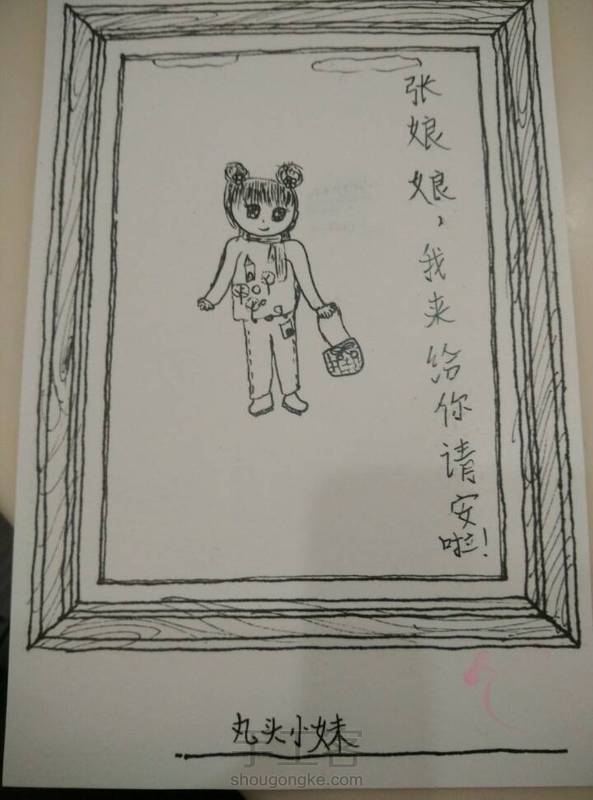 张娘娘，我来给你请安啦！
丸头小妹
手工客
shougongke.com